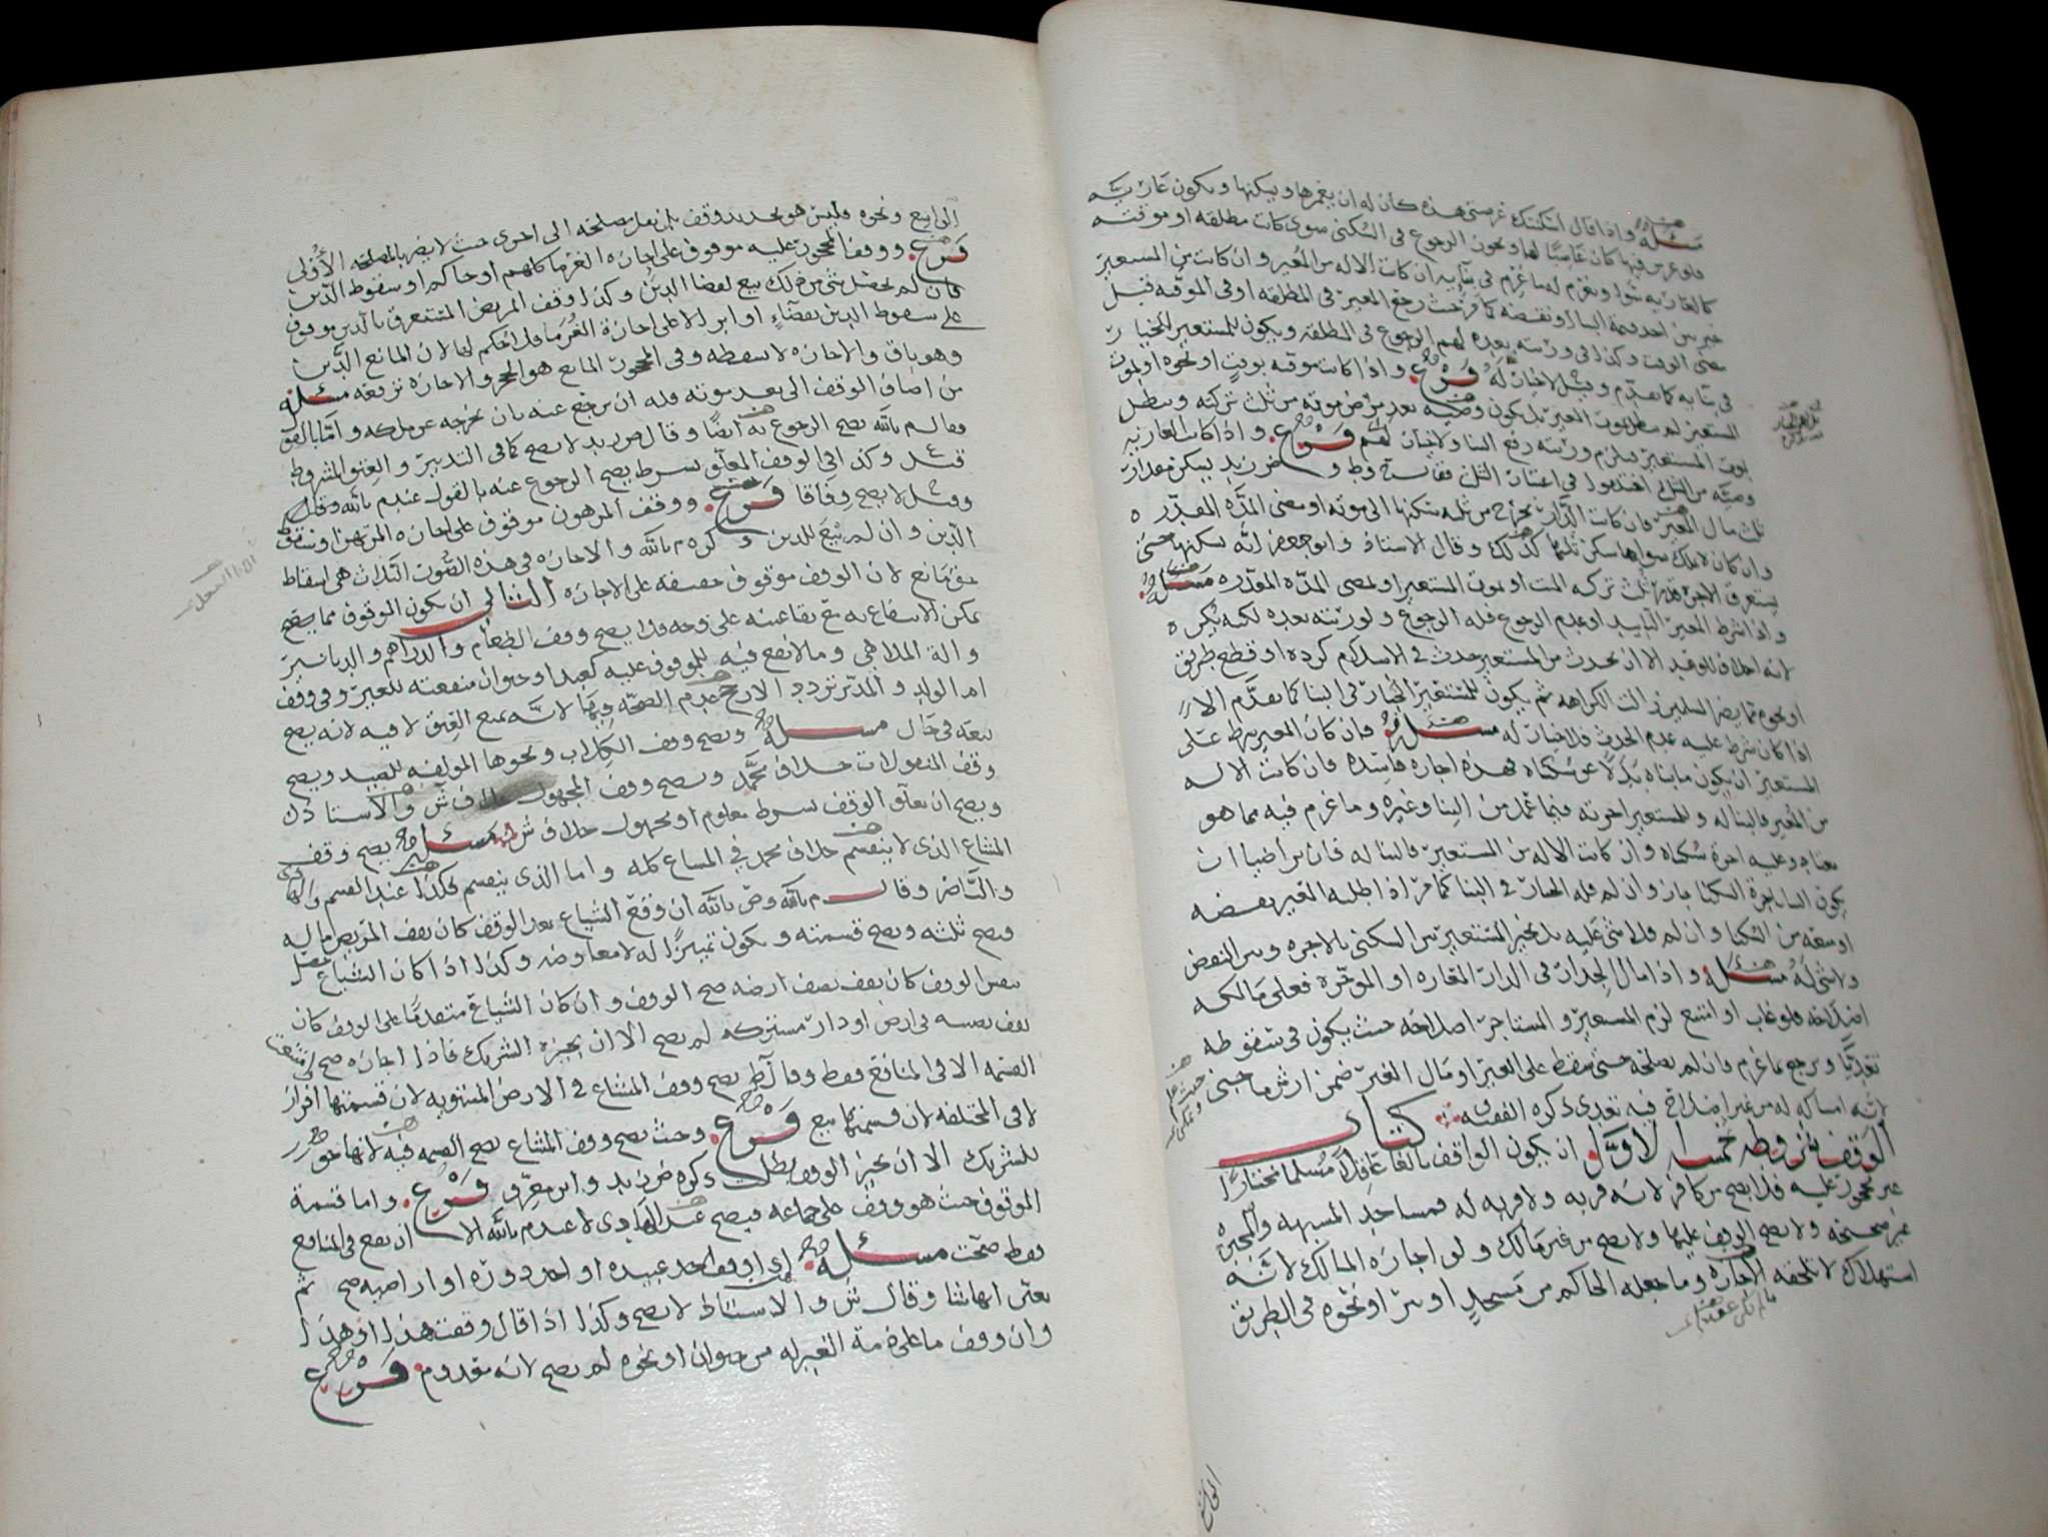 مسئلة واذا قال اسكنتك عرصتي هذه كان له ان يعمرها ويسكنها ويكون عارية
فلو غرس فيها كان غاصبا لها ويجوز الرجوع في السكنى سوى كانت مطلقه او موقته
كالعاريه سوا ويغرم له ما غرم في بنايه ان كانت الاله من المعير وان كانت من المستعير
خير بين اخذ قيمة البنا او نقضه كما مر حيث رجع المعير في المطلقه او في الموقته قبل
مضي الوقت وكذا في ورثته بعده لهم الرجوع في المطلقه ويكون للمستعير الخيار
في بنايه كما تقدم وقيل لا خيار له فرع واذا كانت موقته بوقت او نحوه او بموت
المستعير لم تبطل بموت المعير بل يكون وصيه بعد موته من ثلث تركته وتبطل
بموت المستعير فيلزم ورثته رفع البنا ولا خيار لهم فرع واذا كانت العاريه
وصيه من الثلث اختلفوا في اعتبار الثلث فقال وض زيد يسكن مقدار
ثلث مال المعير فان كانت الدار تخرج من ثلثه سكنها الى موته او مضى المده المقدره
وان كان لا يملك سواها سكن ثلثها كذلك وقال الاستاذ وابو جعفر انه يسكنها حتى
يستغرق الاجره قدر ثلث تركه الميت او بموت المستعير او بمضى المده المقدره مسئلة
واذا شرط المعير التابيد او عدم الرجوع فله الرجوع ولورثته بعده لكنه يكره
لانه اخلاف للوعد الا ان يحدث من المستعير حدث في الاسلام كرده او قطع طريق
او نحوه مما يضر المسلمين زالت الكراهه ثم يكون للمستعير الخيار في البنا كما تقدم الا
اذا كان شرط عليه عدم الحدث فلا خيار له مسئلة فان كان المعير شرط على
المستعير ان يكون ما بناه بدلا عن سكناه فهذه اجاره فاسده فان كانت الاله
من المعير فالبنا له وللمستعير اجرته فيما عمل من البنا وغيره وما غرم فيه مما هو
معتاد وعليه اجرة سكناه وان كانت الاله من المستعير فالبنا له فان تراضيا ان
يكون البنا باجرة السكنا جاز وان لم فله الخيار في البنا كما مر اذا طلبه المعير بنقضه
او منعه من السكنا وان لم فلا شي عليه بل يخير المستعير بين السكنى بالاجره وبين النقض
ولا شي له مسئلة واذا مال الجدار في الدار المعاره او الموجره فعلى مالكه
اصلاحه فلو غاب او امتنع لزم المستعير والمستاجر اصلاحه حيث يكون في سقوطه
تعديا ويرجع بما غرم وان لم يصلحه حتى سقط على الغير او مال الغير ضمن ارش ما جنى
لانه امساكه له من غير اصلاح فيه تعدى ذكره الفقيه كتاب
الوقف شروطه خمسة الاول ان يكون الواقف بالغا عاقلا مسلما مختارا
غير محجور عليه فلا يصح من كافر لانه قربه ولا قربه له فمساجد المشبهه والمجبره
غير صحيحه ولا يصح الوقف عليها ولا يصح من غير مالك ولو اجازه المالك لانه
استهلاك لا تلحقه الاجازه وما جعله الحاكم من مسجد او بير او نحوه في الطريق
الى البيع ونحوه فليس هو تجديد وقف بل نقل مصلحته الى اخرى حيث لا يضر بالمصلحه الاولى
فرع ووقف المحجور عليه موقوف على اجازه الغرما كلهم او حاكم او سقوط الدين
فان لم يحصل شي من ذلك بيع لقضا الدين وكذا وقف المريض المستغرق بالدين موقوف
على سقوط الدين بقضاء او ابراء لا على اجازة الغرما ولا الحكم لها لان المانع الدين
وهو باق والاجازه لا تسقطه وفي المحجور المانع هو الحجر والاجازه ترفعه مسئلة
من اضاف الوقف الى بعد موته فله ان يرجع عنه بان يخرجه عن ملكه واما بالقول
فقال م بالله يصح الرجوع به ايضا وقال ض زيد لا يصح كما في التدبير والعتق المشروط
قيل وكذا في الوقف المعلق بشرط يصح الرجوع عنه بالقول عند م بالله وقال
وقيل لا يصح وفاقا فرع ووقف المرهون موقوف على اجازه المرتهن او سقوط
الدين وان لم بيع للدين ذكره م بالله والاجازه في هذه الصور الثلاث هي اسقاط
حق مانع لان الوقف موقوف حقيقه على الاجازه الثاني ان يكون الموقوف مما يصح
يمكن الانتفاع به مع بقا عينه على وجه فلا يصح وقف الطعام والدراهم والدنانير
والة الملاهي وما لا نفع فيه للموقوف عليه كعبد او حيوان منفعته للغير وفي وقف
ام الولد والمدبر تردد الارجح عدم الصحه فيهما لانه يمنع العتق لا فيه لانه يصح
بيعه في حال مسئلة ويصح وقف الكلاب ونحوها المولفه للصيد ويصح
وقف المنقولات خلاف محمد ويصح وقف المجهول خلاف ش والاستاذ
ويصح ان يعلق الوقف بشرط معلوم او مجهول خلاف ش مسئلة يصح وقف
المشاع الذي لا ينقسم خلاف محمد في المشاع كله واما الذي ينقسم فكذا عند القسم والهادي
والناصر وقال م بالله وض بالله ان وقع الشياع بعد الوقف كان يقف المريض ماله
فيصح ثلثه ويصح قسمته ويكون تمييزا له لا معاوضه وكذا اذا كان الشياع حصل
بنفس الوقف كان يقف نصف ارضه صح الوقف وان كان الشياع متقدما على الوقف كان
يقف نصيبه في ارض او دار مشتركه لم يصح الا ان يجيزه الشريك فاذا اجازه صح
القسمه الا في المنافع فقط وقال ط يصح وقف المشاع في الارض المستويه لان قسمتها افراز
لا في المختلفه لان قسمتها بيع فرع وحيث يصح وقف المشاع تصح القسمه فيه لانها حق
للشريك الا ان يجيز الوقف بطلت ذكره ض زيد وابن معرف فرع واما قسمة
الموقوف حيث هو وقف على جماعه فيصح عند الهادي لا عند م بالله الا ان تقع في المنافع
فقط صحت مسئلة اذا وقف احد عبيده او احد دوره او اراضيه صح ثم
يعين ايها شا وقال ش والاستاذ لا يصح وكذا اذا قال وقفت هذا او هذا
وان وقف ما على ذمة الغير له من حيوان او نحوه لم يصح لانه معدوم فرع